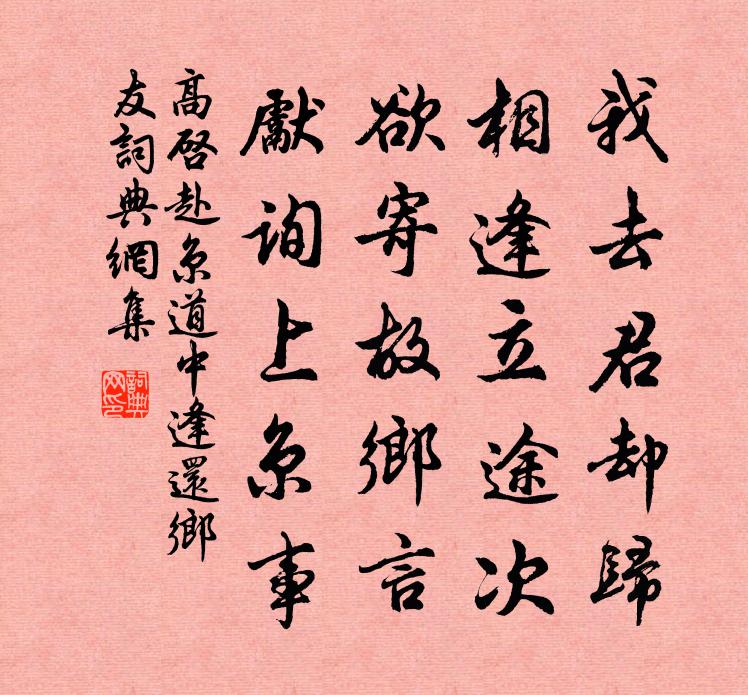 我去君却歸
相逢立途次
欲寄故鄉言
獻詢上京事
高啓赴京道中逢還鄉
友詞典網集
詞典网印